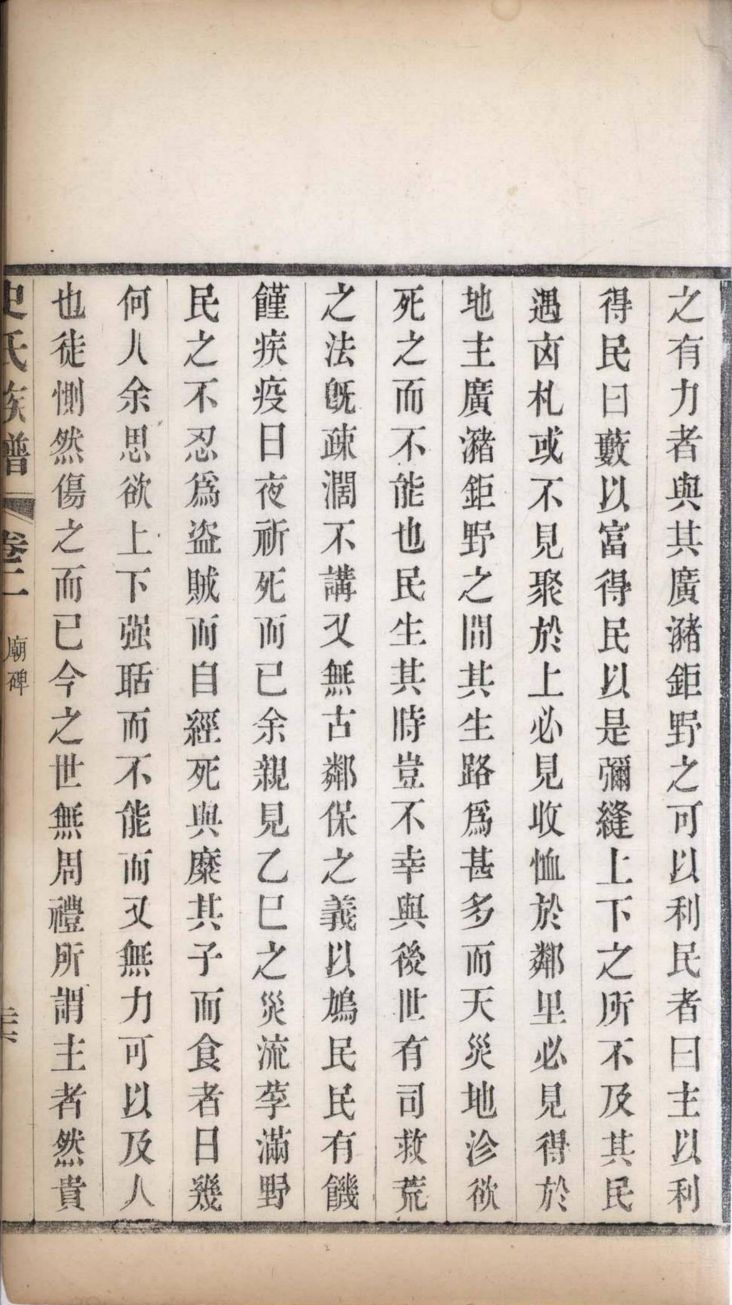 之有力者與其廣瀦鉅野之可以利民者曰主以利
得民曰藪以富得民以是彌縫上下之所不及其民
遇凶札或不見聚於上必見收恤於鄰里必見得於
地主廣瀦鉅野之間其生路爲甚多而天災地沴欲
死之而不能也民生其時豈不幸與後世有司救荒
之法旣疎濶不講又無古鄰保之義以鳩民民有饑
饉疾疫日夜祈死而已余親見乙巳之災流莩滿野
民之不忍爲盜賊而自經死與糜其子而食者日幾
何人余思欲上下强聒而不能而又無力可以及人
也徒惻然傷之而已今之世無周禮所謂主者然貴
史氏族譜 卷二 廟碑